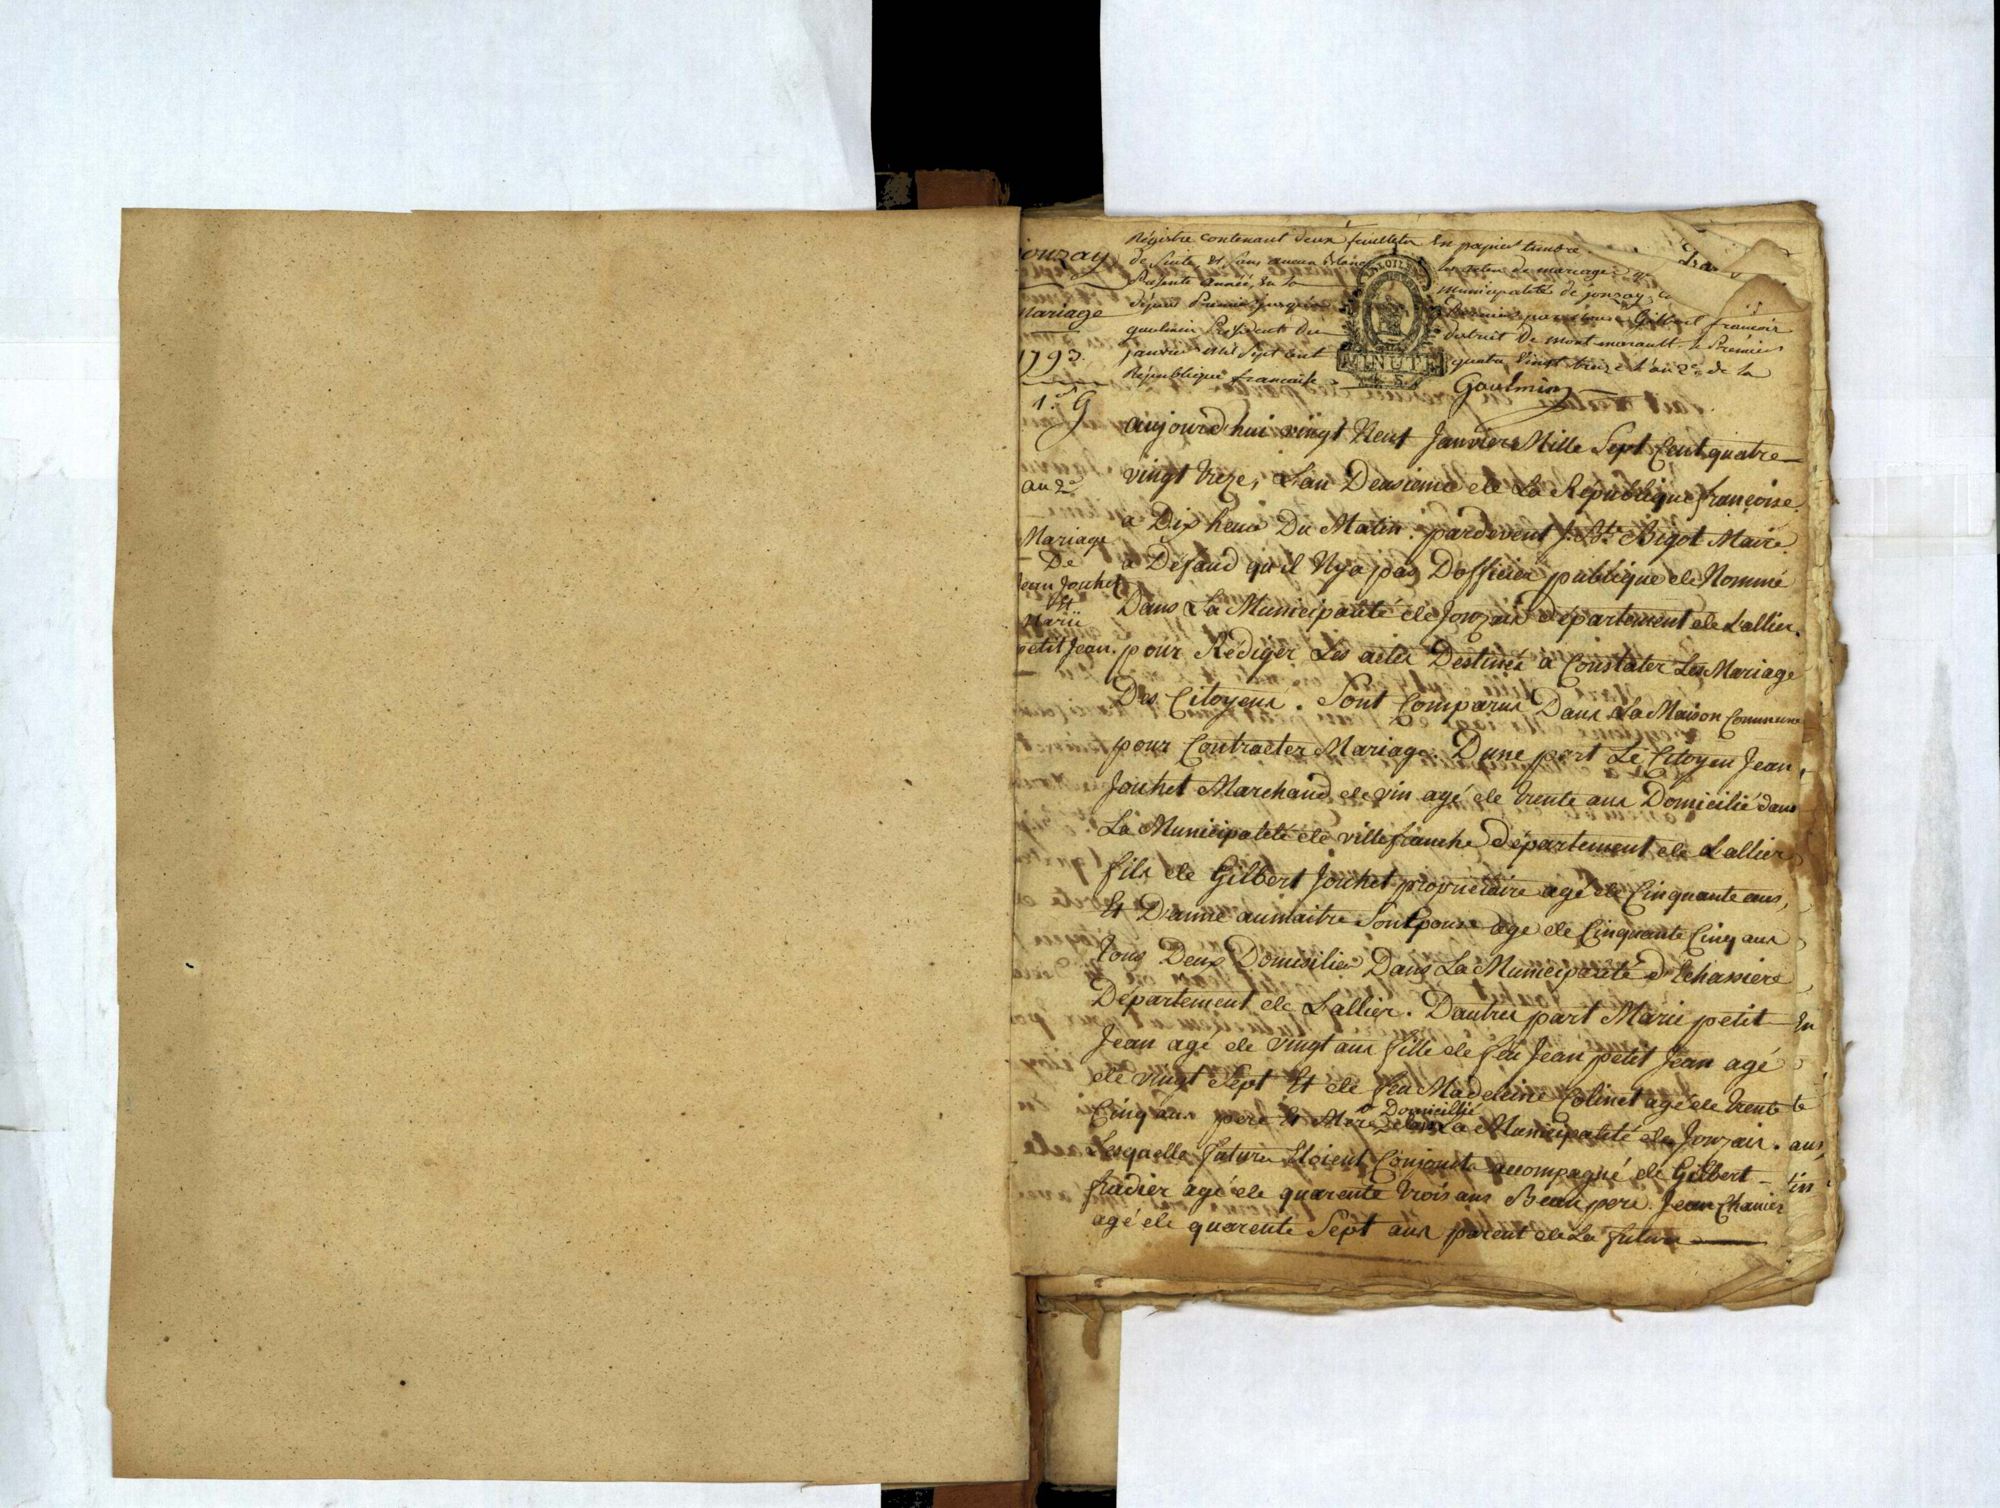 Régistre contenant deux feuillets en papier timbré
de suite et sans aucun blanc les actes de mariage
présente année, en la municipalité de jonzay,
gaulmin Président du district de montmarault le Premier
janvier mil sept cent quatre vingt treize l'an 2e. de la
République francaise
Gaulmin
jonzay
Mariage
1793.
an 2e
Mariage
De
Jean Jouhet
Et
Marie
petit Jean.
aujourd'hui vingt Neuf Janvier Mille Sept Cent quatre
vingt treze, L'an Deusieme de La République françoise
a Dix heure Du Matin. pardevent J. Bte Bigot Maire
a Défaud qu'il N'y a pas D'officier publique de Nommé
Dans La Municipalité de Jonzais département de L'allier.
pour Rédiger Les actes Destinés a Constater Les Mariage
Des Citoyens. Sont Comparus Dans La Maison Commune
pour Contracter Mariage. D'une part Le Citoyen Jean
Jouhet Marchand de vin agé de trente ans Domicilié dans
La Municipalité de villefranche département de Lallier
fils de Gilbert Jouhet propriétaire agé de Cinquante ans,
Et D'anne aumaitre Son Epouse agé de Cinquante Cinq ans
tous Deux Domicilié Dans La Municipalité d'Echassiere
Département de Lallier. D'autres part Marie petit
Jean agé de vingt ans fille de feu Jean petit Jean agé
de vingt Sept Et de feu Madeleine Colinet agé de trente
Cinq ans pere Et Mere Domicillié Dans La Municipalité de Jonzais.
Lesquelle futures Etoient Conjoints accompagné de Gilbert
fradier agé de quarente trois ans Beau pere. Jean Chanier
agé de quarente Sept ans parent de La future